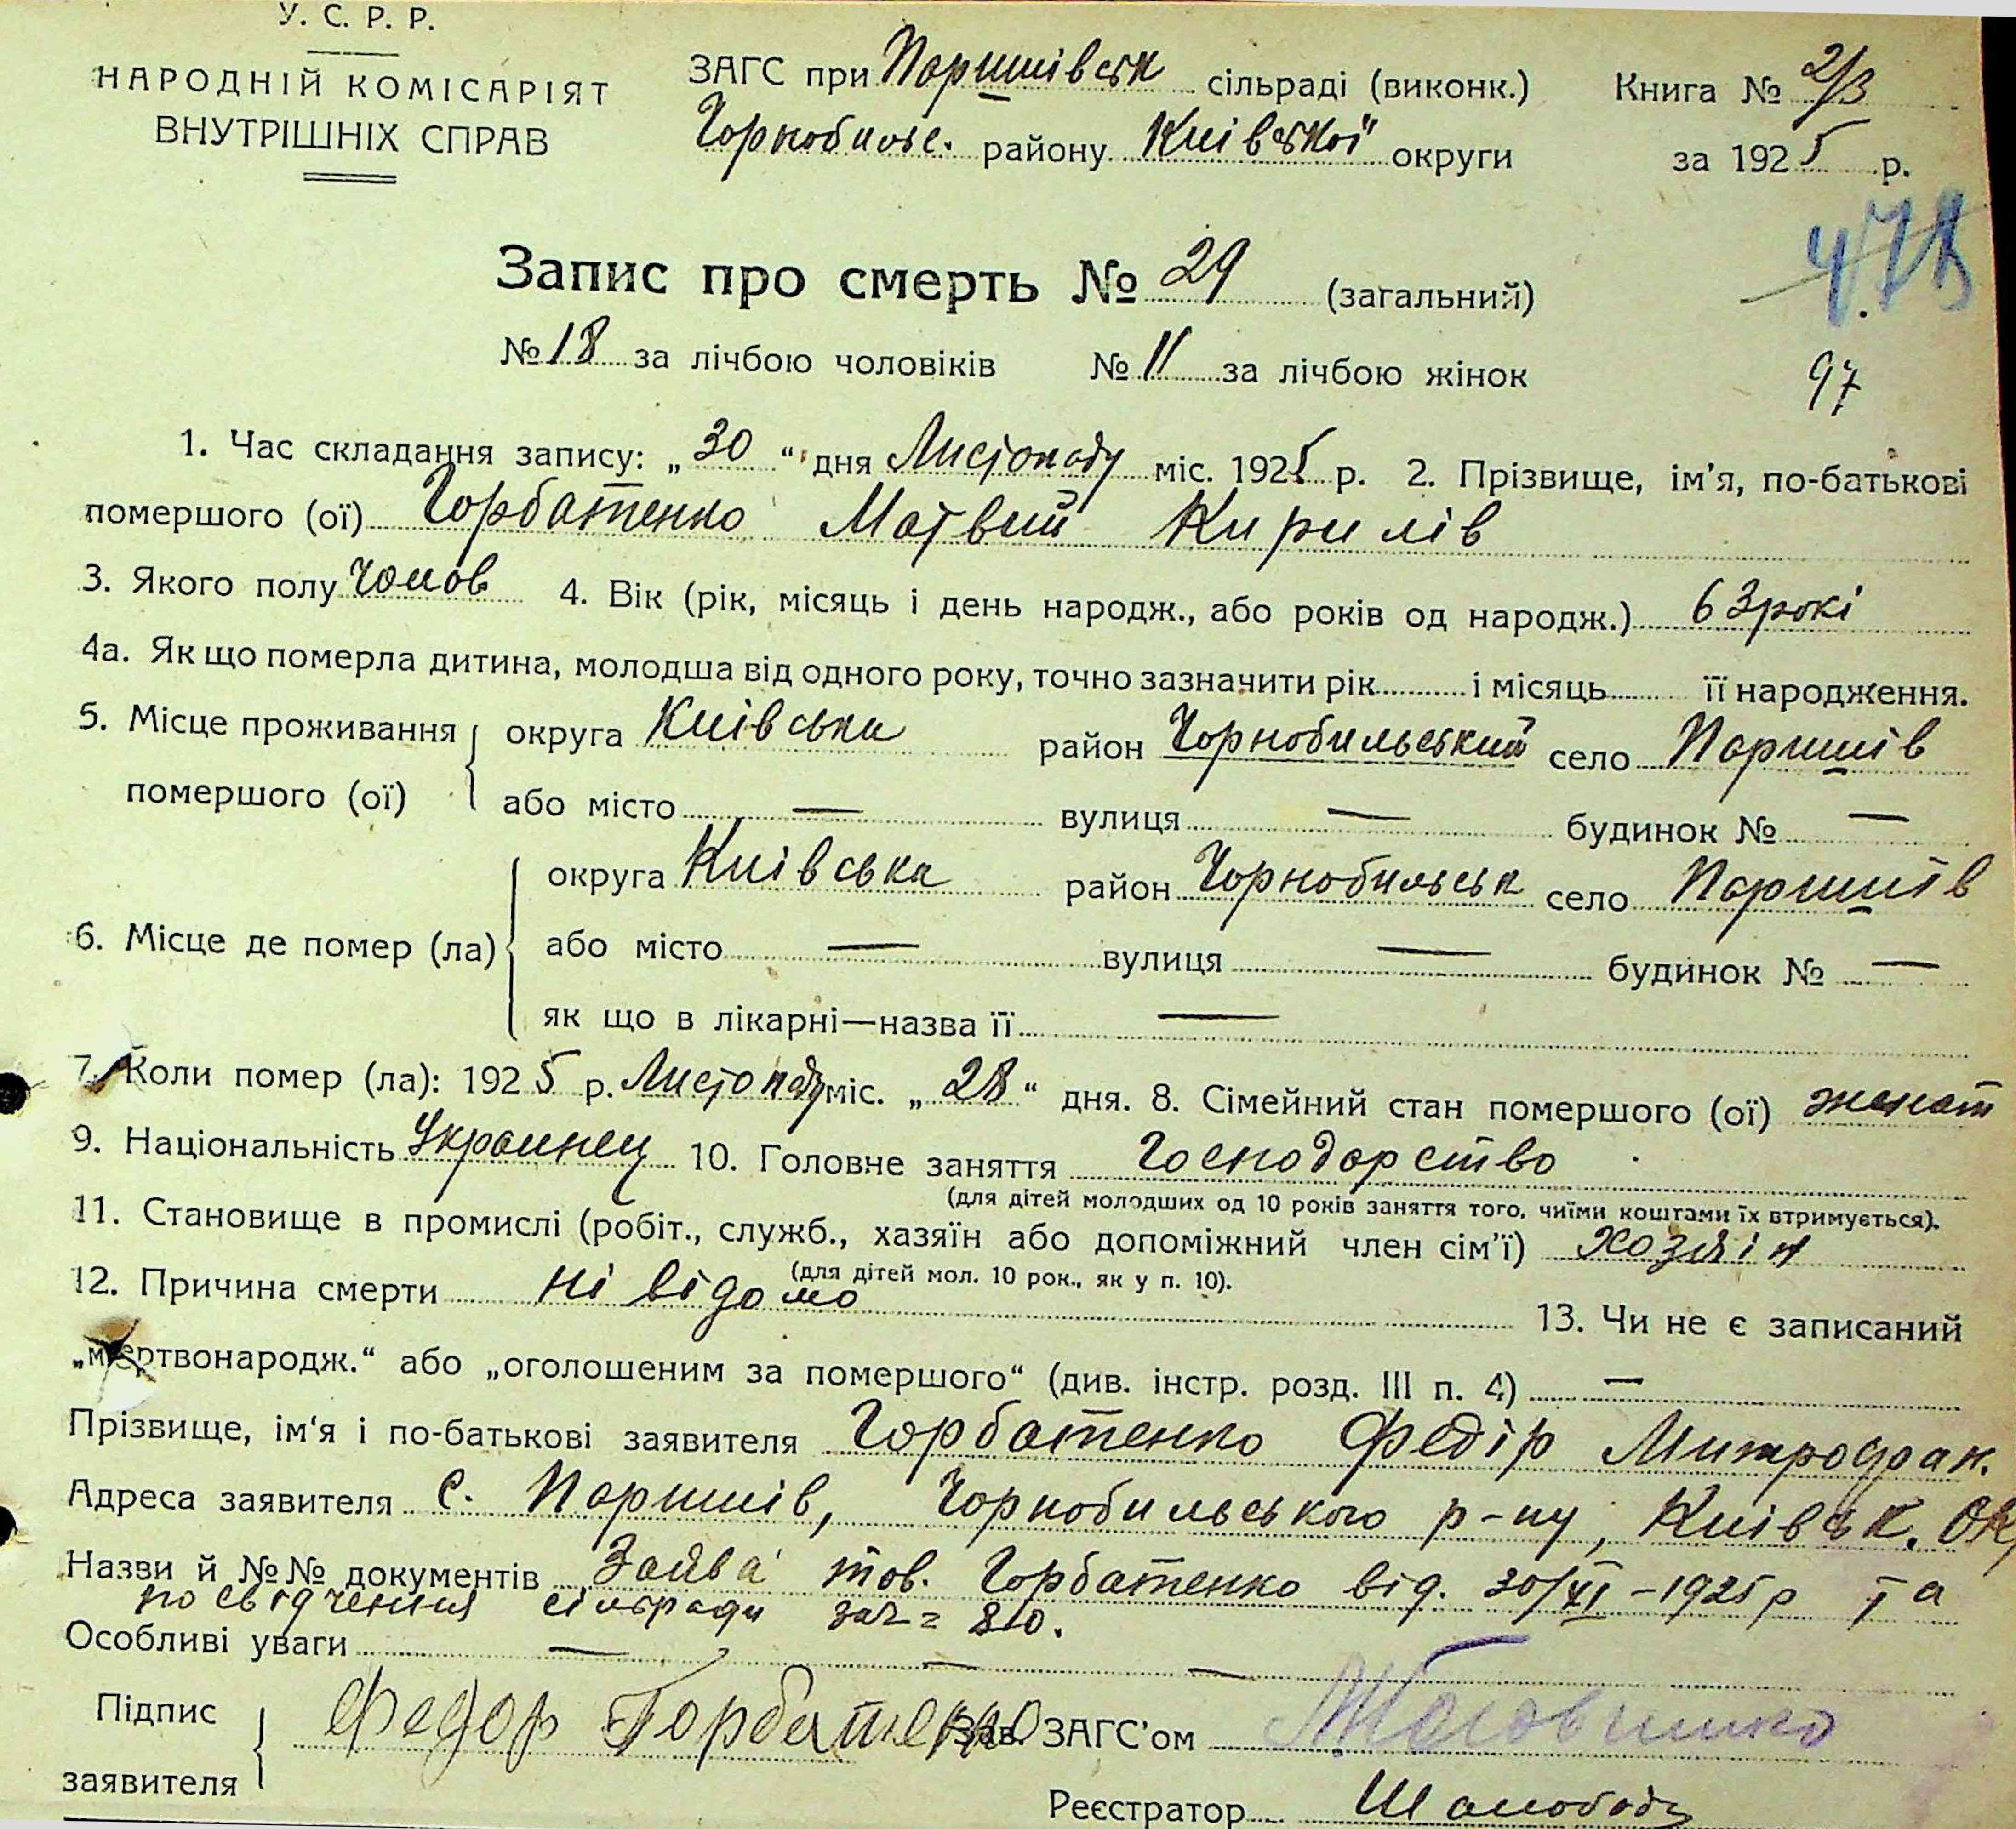 У. С. Р. Р.
НАРОДНІЙ КОМІСАРІЯТ
ВНУТРІШНІХ СПРАВ
ЗАГС при Паришівськ сільраді (виконк.)
Чорнобильс. району Київської округи
Книга № 2/3
за 1925 р.
478
Запис про смерть № 29 (загальний)
№ 18 за лічбою чоловіків № 11 за лічбою жінок
97
1. Час складання запису: „30“ дня Листопаду міс. 1925 р. 2. Прізвище, ім'я, по-батькові
помершого (ої) Горбатенко Матвий Кирилів
3. Якого полу Чолов 4. Вік (рік, місяць і день народж., або років од народж.) 63 рокі
4а. Як що померла дитина, молодша від одного року, точно зазначити рік і місяць її народження.
5. Місце проживання округа Київська район Чорнобильський село Паришів
помершого (ої) або місто — вулиця — будинок № —
округа Київська район Чорнобильськ село Паришів
6. Місце де помер (ла) або місто — вулиця — будинок № —
як що в лікарні—назва її —
7. Коли помер (ла): 1925 р. Листопаду міс. „28“ дня. 8. Сімейний стан помершого (ої) женат
9. Національність Украинец 10. Головне заняття Господарство
(для дітей молодших од 10 років заняття того, чиїми коштами їх втримується).
11. Становище в промислі (робіт., служб., хазяїн або допоміжний член сім'ї) хозяін
(для дітей мол. 10 рок., як у п. 10).
12. Причина смерти ні відомо 13. Чи не є записаний
„мертвонародж.“ або „оголошеним за помершого“ (див. інстр. розд. III п. 4) —
Прізвище, ім'я і по-батькові заявителя Горбатенко Федір Митрофан.
Адреса заявителя С. Паришів, Чорнобильського р-ну, Київськ. Окр
Назви й №№ документів Заява тов. Горбатенко від. 30/XI – 1925 р та
посвідчення сільради за № 810.
Особливі уваги — — —
Підпис
заявителя
Федор Горбатенко
Зав. ЗАГС'ом
Реєстратор